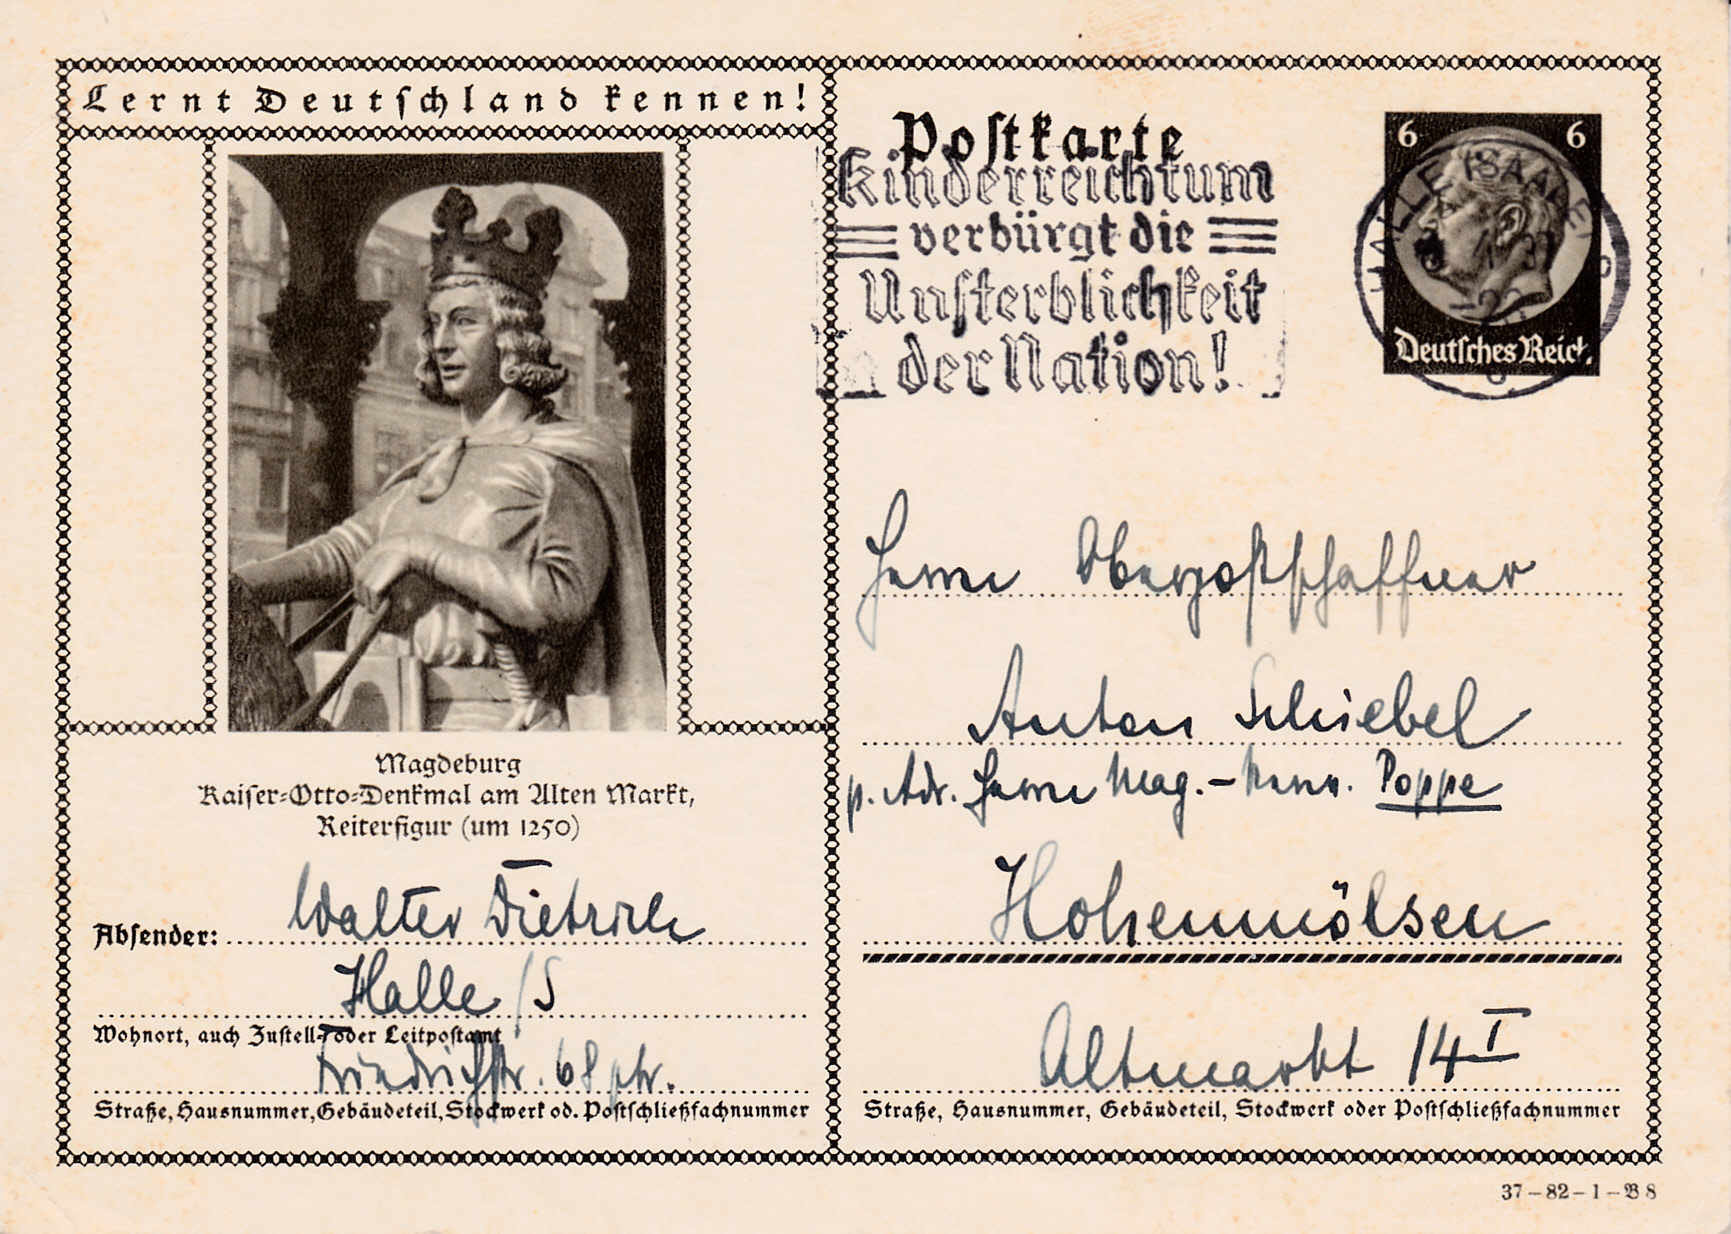 Lernt Deutschland kennen!
Magdeburg
Kaiser=Otto=Denkmal am Alten Markt,
Reiterfigur (um 1250)
Absender: Walter Dietrich
Halle /S
Wohnort, auch Zustell- oder Leitpostamt
Friedrichstr. 68 ptr.
Straße, Hausnummer, Gebäudeteil, Stockwerk od. Postschließfachnummer
Postkarte
Kinderreichtum
verbürgt die
Unsterblichkeit
der Nation!
6 6
HALLE (SAALE)
Deutsches Reich
Herrn Oberpostschaffner
Anton Schiebel
p. Adr. Herrn Mag.- Poppe
Hohenmölsen
Altmarkt 14 I
Straße, Hausnummer, Gebäudeteil, Stockwerk oder Postschließfachnummer
37-82-1-B 8